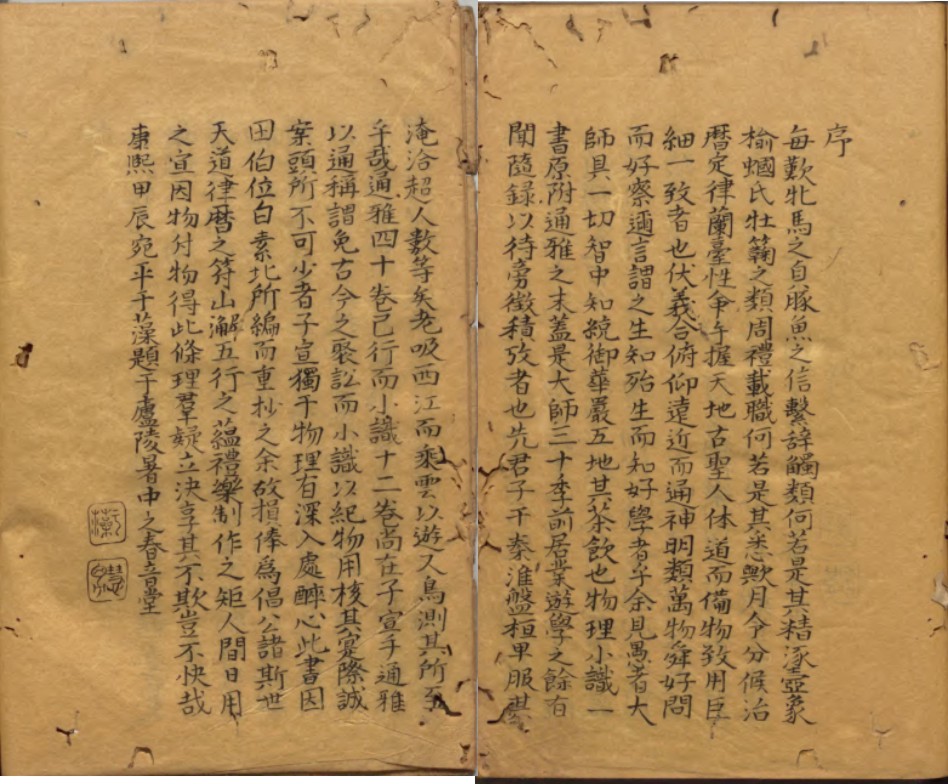 序
每歎牝馬之貞豚魚之信繫辭觸類何若是其精涿壺象
榆蟈氏牡蘜之類周禮載職何若是其悉歟月令分候治
曆定律蘭臺性爭午握天地古聖人体道而備物致用巨
細一致者也伏羲合俯仰遠近而通神明類萬物舜好問
而好察邇言謂之生知殆生而知好學者乎余見愚者大
師具一切智中知統御華嚴五地其茶飲也物理小識一
書原附通雅之末蓋是大師三十季前居業遊學之餘有
聞隨錄以待旁徵積攷者也先君子于秦淮盤桓畢服其
淹洽超人數等矣老吸西江而乘雲以遊又烏測其所至
乎哉通雅四十卷已行而小識十二卷尚在子宣手通雅
以通稱謂免古今之聚訟而小識以紀物用核其寔際誠
案頭所不可少者子宣獨于物理有深入處醉心此書因
田伯位白素北所編而重抄之余故捐俸為倡公諸斯世
天道律曆之符山澥五行之蘊禮樂制作之矩人間日用
之宣因物付物得此條理羣疑立決享其不欺豈不快哉
康熙甲辰宛平于藻題于廬陵暑中之春音堂